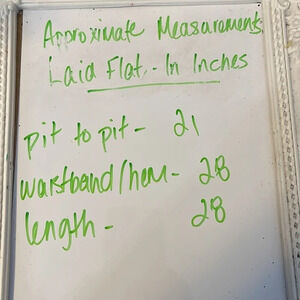 Approximate Measurements
Laid Flat - In Inches
pit to pit - 21
waistband/hem - 28
length - 28